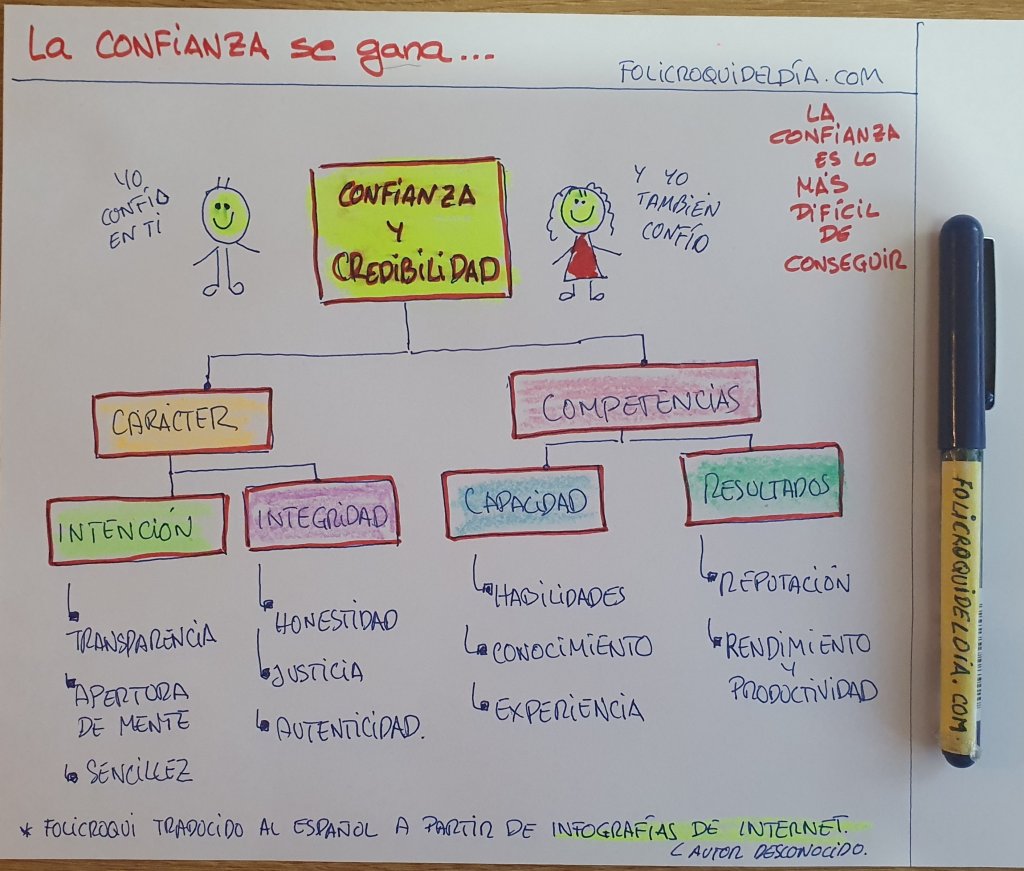 La CONFIANZA se gana...
FOLICROQUIDELDÍA.COM
LA
CONFIANZA
ES LO
MÁS
DIFÍCIL
DE
CONSEGUIR
YO
CONFÍO
EN TI
CONFIANZA
Y
CREDIBILIDAD
Y YO
TAMBIÉN
CONFÍO
CARÁCTER
COMPETENCIAS
INTENCIÓN
INTEGRIDAD
CAPACIDAD
RESULTADOS
TRANSPARENCIA
APERTURA
DE MENTE
SENCILLEZ
HONESTIDAD
JUSTICIA
AUTENTICIDAD.
HABILIDADES
CONOCIMIENTO
EXPERIENCIA
REPUTACIÓN
RENDIMIENTO
Y
PRODUCTIVIDAD
* FOLICROQUI TRADUCIDO AL ESPAÑOL A PARTIR DE INFOGRAFÍAS DE INTERNET.
(AUTOR DESCONOCIDO.
FOLICROQUIDELDÍA.COM